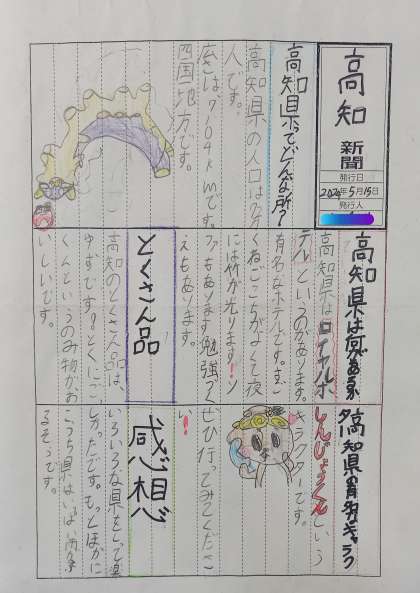 高知
新聞
発行日
2024年5月15日
発行人
高知県ってどんな所?
高知県の人口は
人です。
さは、7104kmです。
四国地方です。
高知県は何が有名
高知県はロイヤルホ
テルというのがあります。
有名なホテルです。
ねごこちがよくて夜
には竹が光ります!ソ
ファもあります勉強づく
えもあります。
とくさん品
高知のとくさん品は、
ゆずです。とくに
くんというのみ物がお
いしいです。
高知県の有名なキャラク
しんじょうくんという
キャラクターです。
ぜひ行ってみてくださ
い!
感想
いろいろな県をしって楽
しかったです。もっとほかに
こうち県は
るそうです。